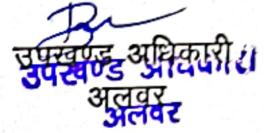 उपखण्ड अधिकारी
उपखण्ड अधिकारी
अलवर
अलवर